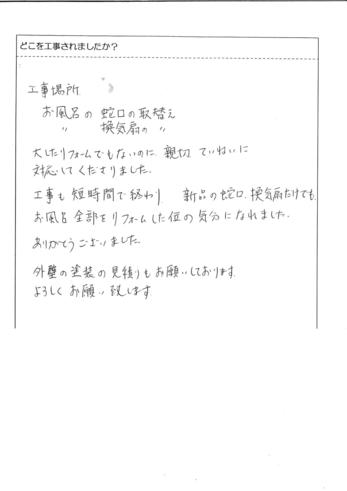 どこを工事されましたか？
工事場所
お風呂の 蛇口の取替え
〃 換気扇の 〃
大したリフォームでもないのに、親切 ていねいに
対応してくださりました。
工事も短時間で終わり 新品の蛇口、換気扇だけでも
お風呂全部をリフォームした位の気分になれました。
ありがとうございました。
外壁の塗装の見積りもお願いしております。
よろしくお願い致します。